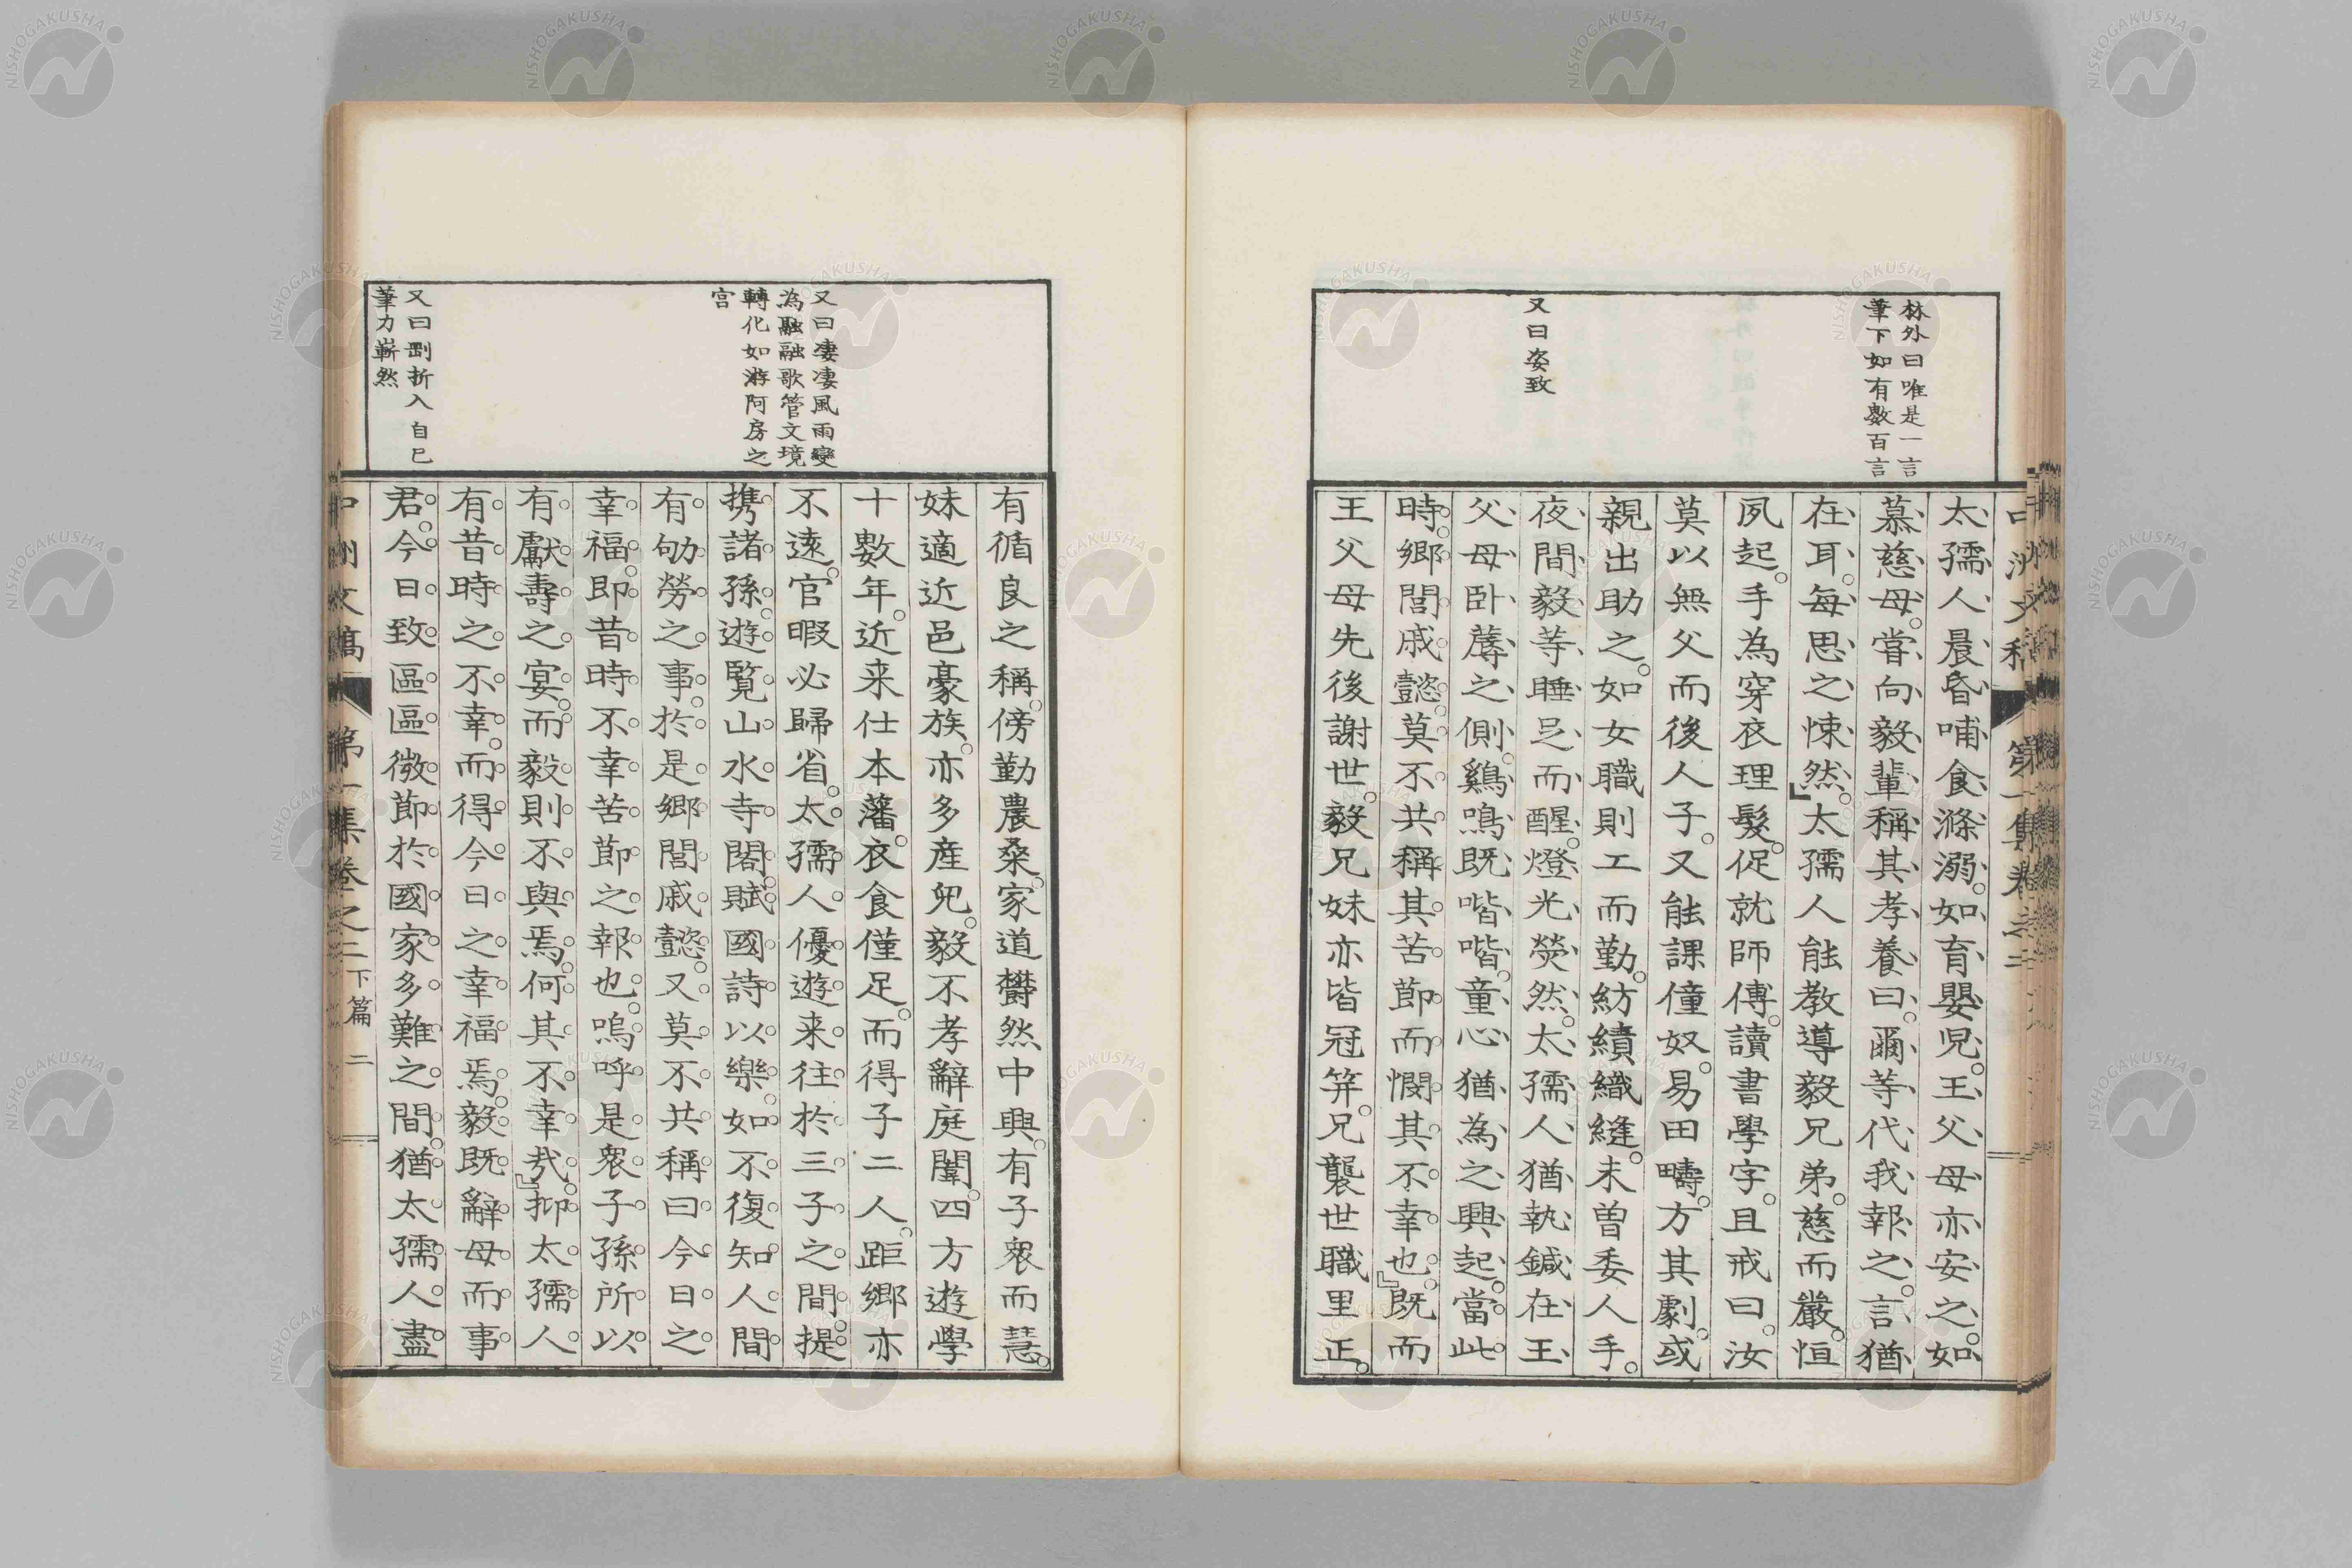 林外曰唯是一言
筆下如有數百言
又曰姿致
太孺人晨昏哺食滌溺。如育嬰児。王父母亦安之。如
慕慈母。嘗向毅輩稱其孝養曰。爾等代我報之。言猶
在耳。每思之悚然。』太孺人能教導毅兄弟。慈而嚴。恒
夙起。手為穿衣理髮。促就師傅。讀書學字。且戒曰。汝
莫以無父而後人子。又能課僮奴。易田疇。方其劇。或
親出助之。如女職則工而勤。紡績織縫。未曽委人手。
夜間毅等睡足而醒。燈光熒然。太孺人猶執鍼在王
父母卧蓐之側。鷄鳴既喈喈。童心猶為之興起。當此
時。鄉閭戚懿。莫不共稱其苦節而憫其不幸也。』既而
王父母先後謝世。毅兄妹亦皆冠笄。兄襲世職里正。
又曰凄凄風雨變
為融融歌管文境
轉化如游阿房之
宮
又曰劃折入自已
筆力嶄然
有循良之稱。傍勤農桑。家道欝然中興。有子衆而慧。
妹適近邑豪族。亦多産兒。毅不孝辭庭闈。四方遊學
十數年。近来仕本藩。衣食僅足。而得子二人。距鄉亦
不遠。官暇必歸省。太孺人優遊来往於三子之間。提
携諸孫。遊覧山水寺閣。賦國詩以樂。如不復知人間
有劬勞之事。於是鄉閭戚懿。又莫不共稱曰。今日之
幸福。即昔時不幸苦節之報也。嗚呼是衆子孫所以
有獻壽之宴。而毅則不與焉。何其不幸哉。』抑太孺人
有昔時之不幸。而得今日之幸福焉。毅既辭母而事
君。今日致區區微節於國家多難之間。猶太孺人盡
中洲文稿
第一集卷之二下篇
二